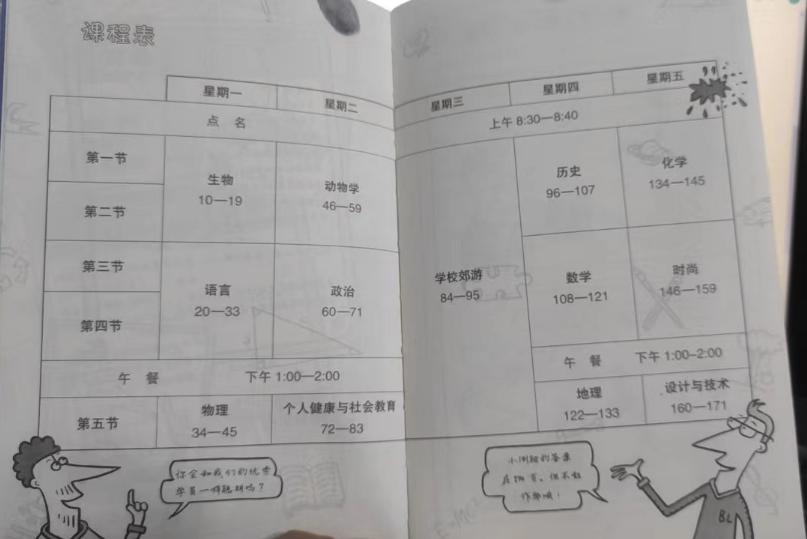 课程表
星期一 星期二 星期三 星期四 星期五
点 名 上午 8:30—8:40
第一节
第二节
生物
10—19
动物学
46—59
历史
96—107
化学
134—145
第三节
第四节
语言
20—33
政治
60—71
学校郊游
84—95
数学
108—121
时尚
146—159
午 餐 下午 1:00—2:00
午 餐 下午 1:00—2:00
第五节
物理
34—45
个人健康与社会教育
72—83
地理
122—133
设计与技术
160—171
你会和我们的优秀
学员一样聪明吗？
小测验的答案
作弊哦！
BL